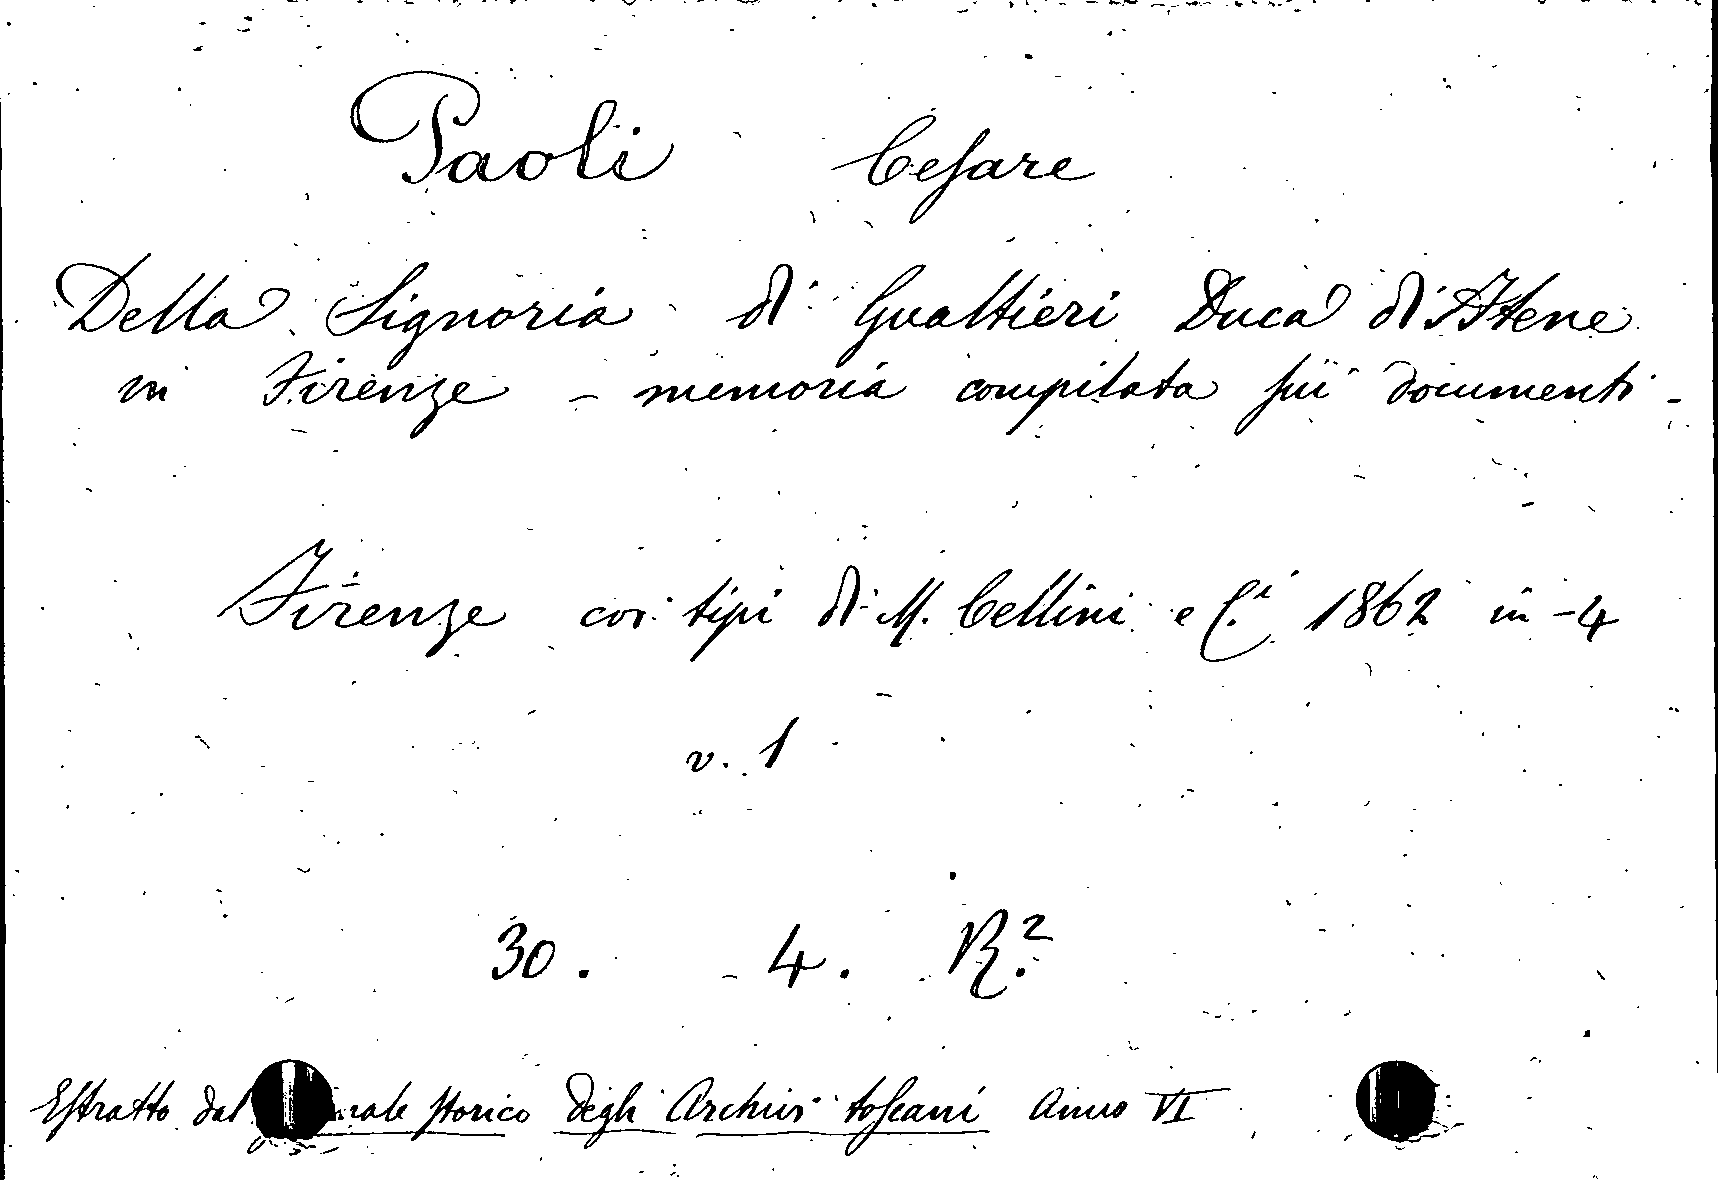 Paoli Cesare
Della Signoria di Gualtieri Duca di Atene
in Firenze - memoria compilata sui documenti -
Firenze coi tipi di M. Cellini e C.i 1862 in-4
v. 1
30. 4. R.2
Estratto dal nale storico degli Archivi toscani Anno VI